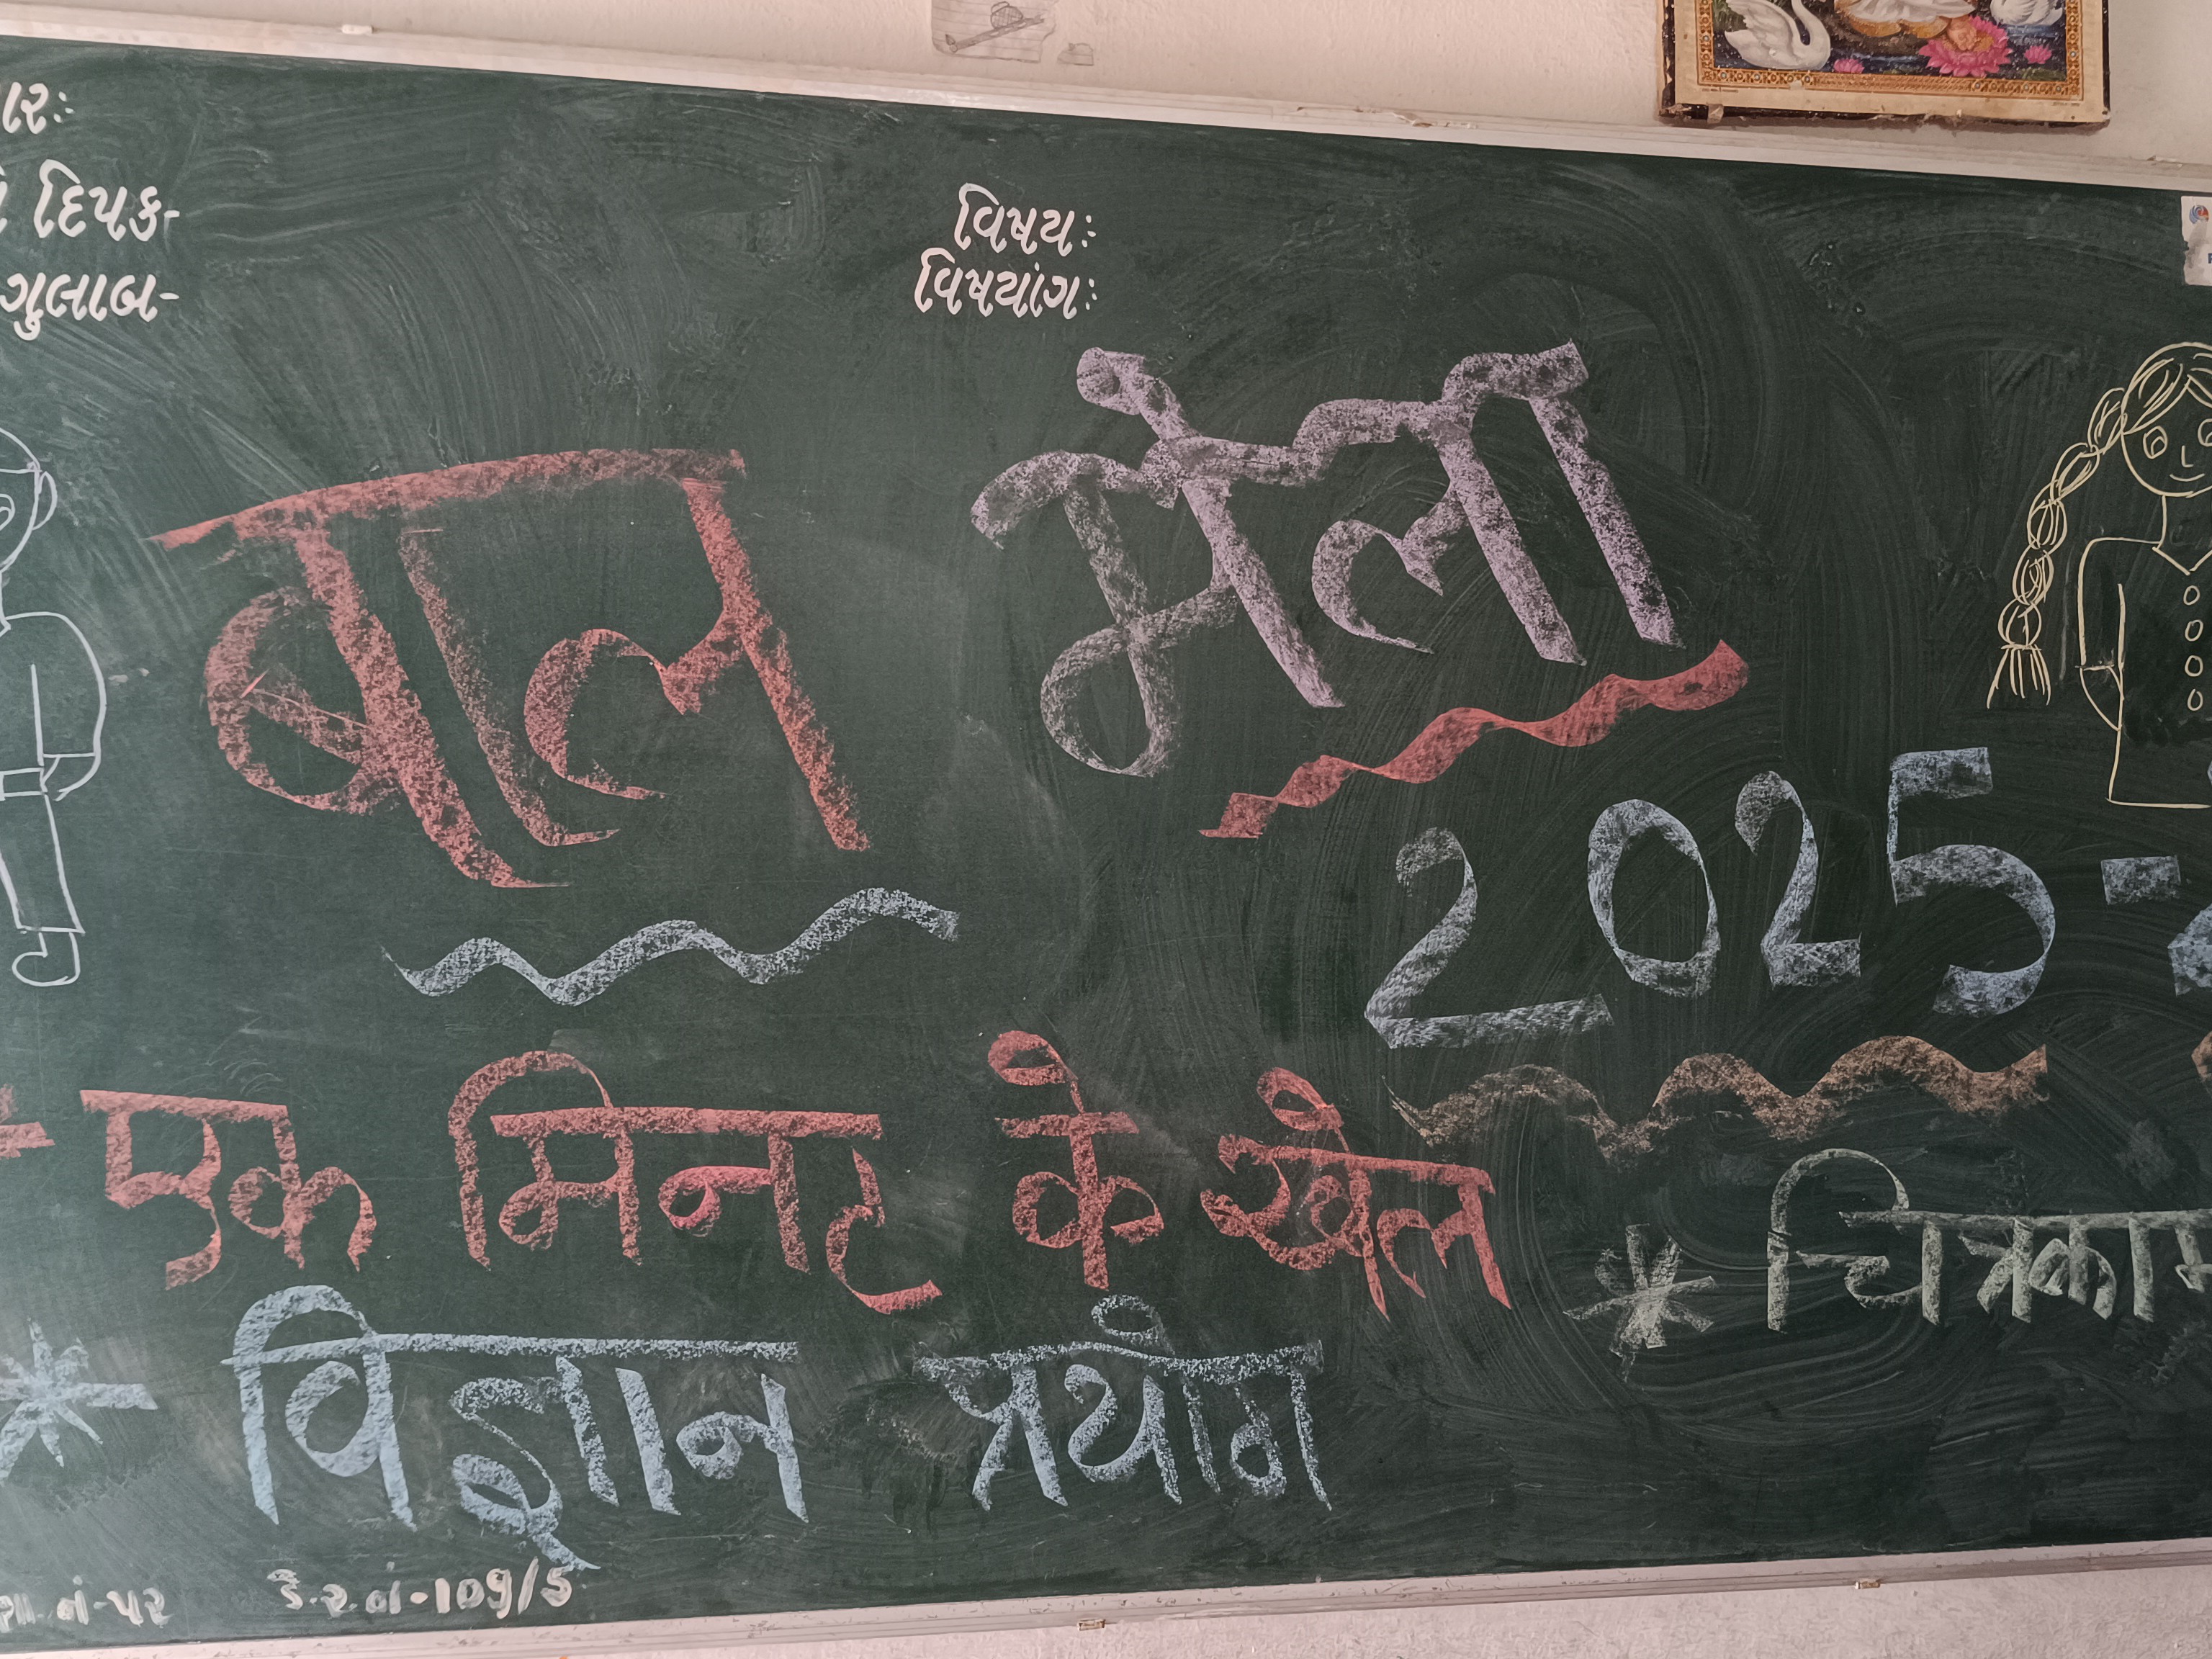 દિપક-
ગુલાબ-
વિષય:
વિષયાંગ:
बाल मेला
2025-
एक मिनट के खेल
* चित्रका
* विज्ञान प्रयोग
ડે.સ્ટ.નં-109/5